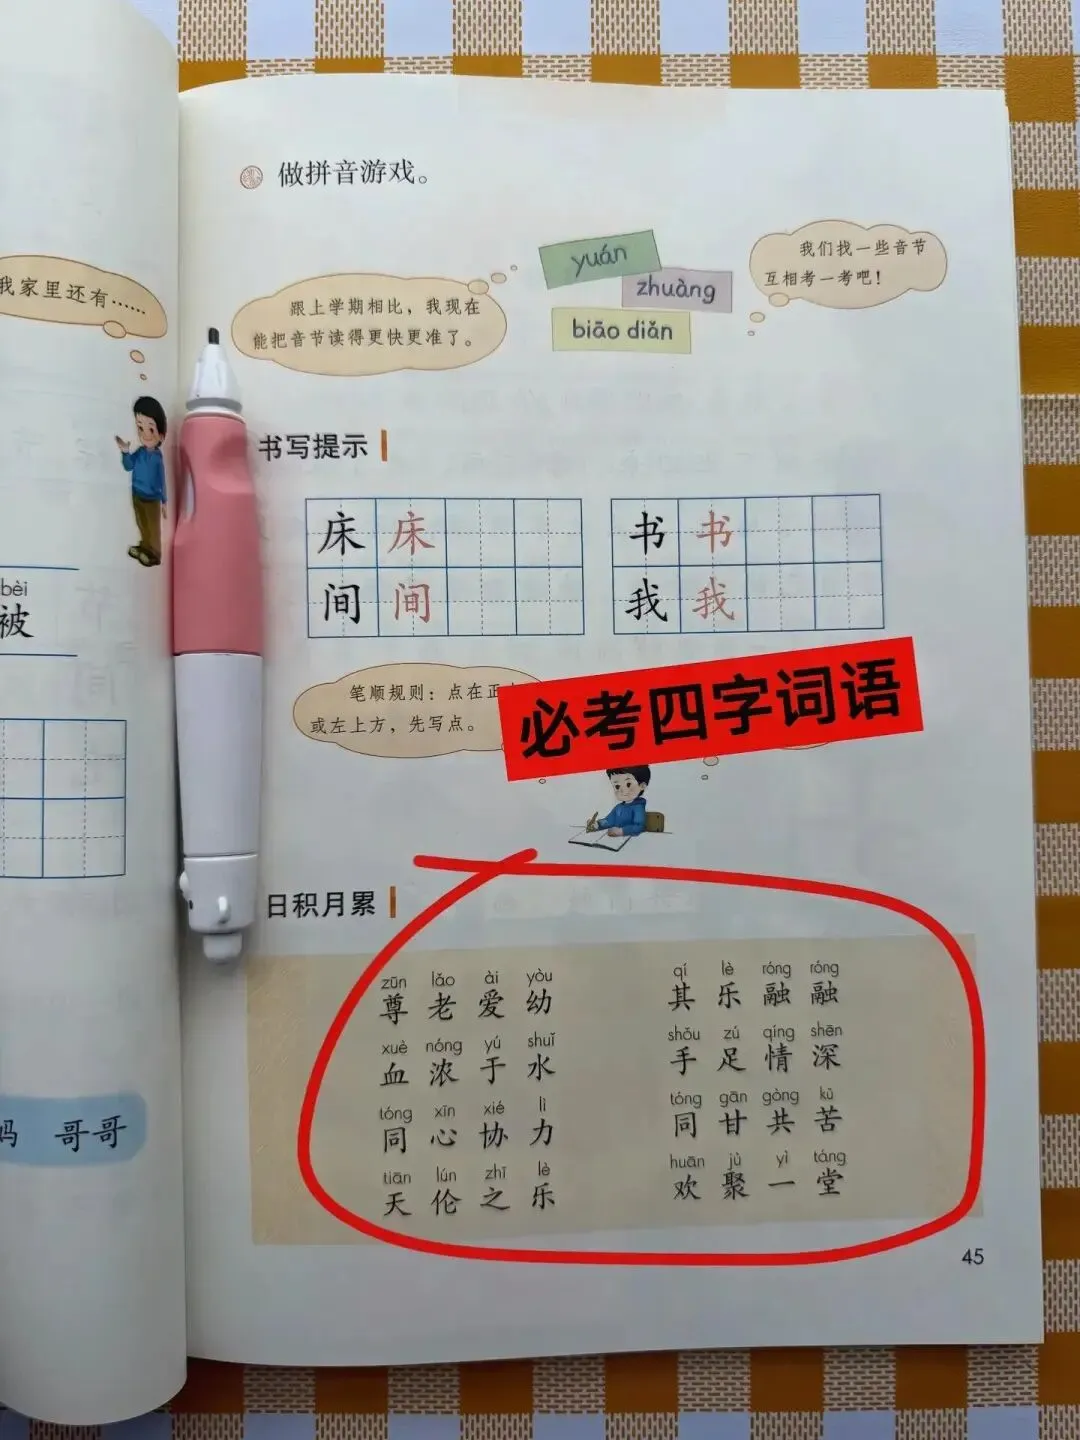 我家里还有……
bèi
被
妈 哥哥
做拼音游戏。
跟上学期相比，我现在
能把音节读得更快更准了。
yuán
zhuàng
biāo diǎn
我们找一些音节
互相考一考吧！
书写提示
床 床
间 间
书 书
我 我
笔顺规则：点在正
或左上方，先写点。
必考四字词语
日积月累
zūn lǎo ài yòu
尊老爱幼
xuè nóng yú shuǐ
血浓于水
tóng xīn xié lì
同心协力
tiān lún zhī lè
天伦之乐
qí lè róng róng
其乐融融
shǒu zú qíng shēn
手足情深
tóng gān gòng kǔ
同甘共苦
huān jù yì táng
欢聚一堂
45